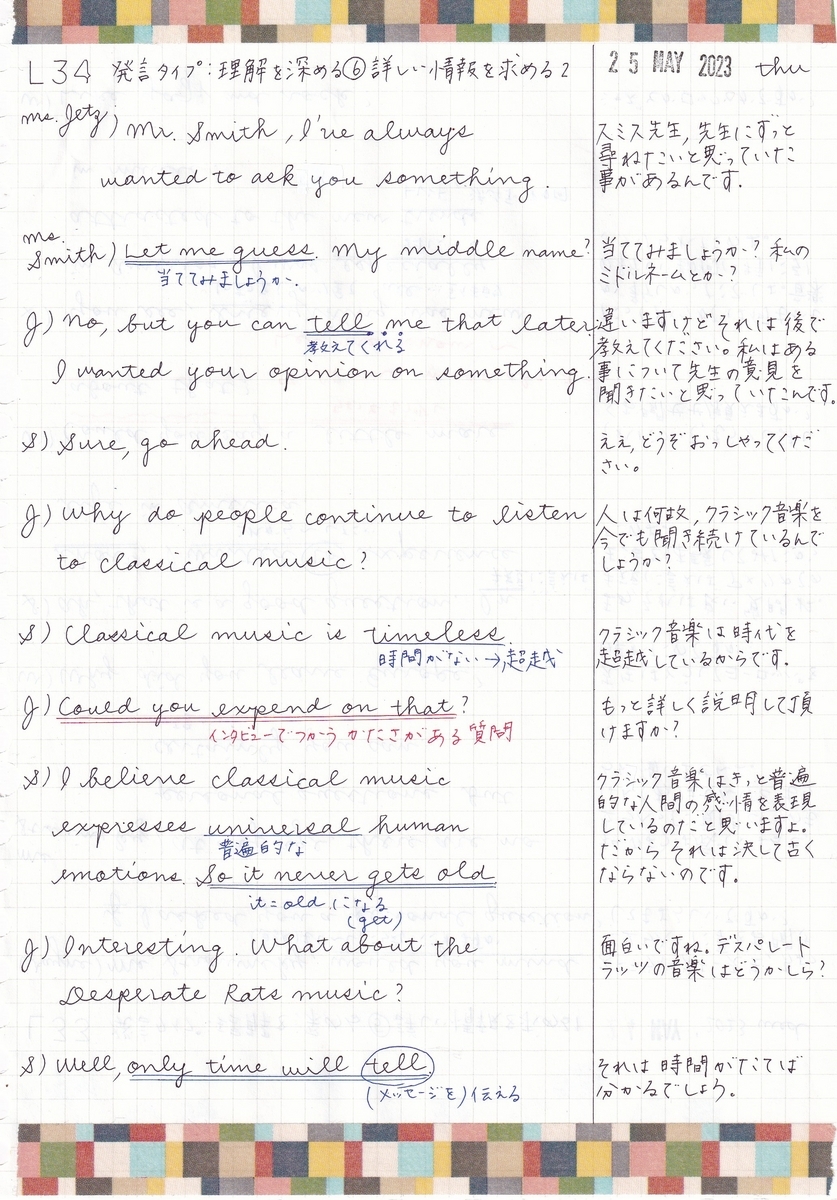 L34 発言タイプ:理解を深める⑥詳しい情報を求める2
25 MAY 2023 thu
Ms. Jetz) Mr. Smith, I've always
wanted to ask you something.
スミス先生, 先生にずっと
尋ねたいと思っていた
事があるんです.
Ms. Smith) Let me guess. My middle name?
当ててみましょうか.
当ててみましょうか? 私の
ミドルネームとか?
J) No, but you can tell me that later.
教えてくれる
I wanted your opinion on something.
違いますけどそれは後で
教えてください。私はある
事について先生の意見を
聞きたいと思っていたんです。
S) Sure, go ahead.
ええ, どうぞおっしゃってくだ
さい。
J) Why do people continue to listen
to classical music?
人は何故, クラシック音楽を
今でも聞き続けているんで
しょうか?
S) Classical music is timeless.
時間がない→超越
クラシック音楽は時代を
超越しているからです.
J) Could you expend on that?
インタビューでつかう かたさがある質問
もっと詳しく説明して頂
けますか?
S) I believe classical music
expresses universal human
普遍的な
emotions. So it never gets old.
it=old になる
(get)
クラシック音楽はきっと普遍
的な人間の感情を表現
しているのだと思いますよ.
だから それは決して古く
ならないのです。
J) Interesting. What about the
Desperate Rats music?
面白いですね。デスパレート
ラッツの音楽はどうかしら?
S) Well, only time will tell.
(メッセージを)伝える
それは時間がたてば
分かるでしょう。